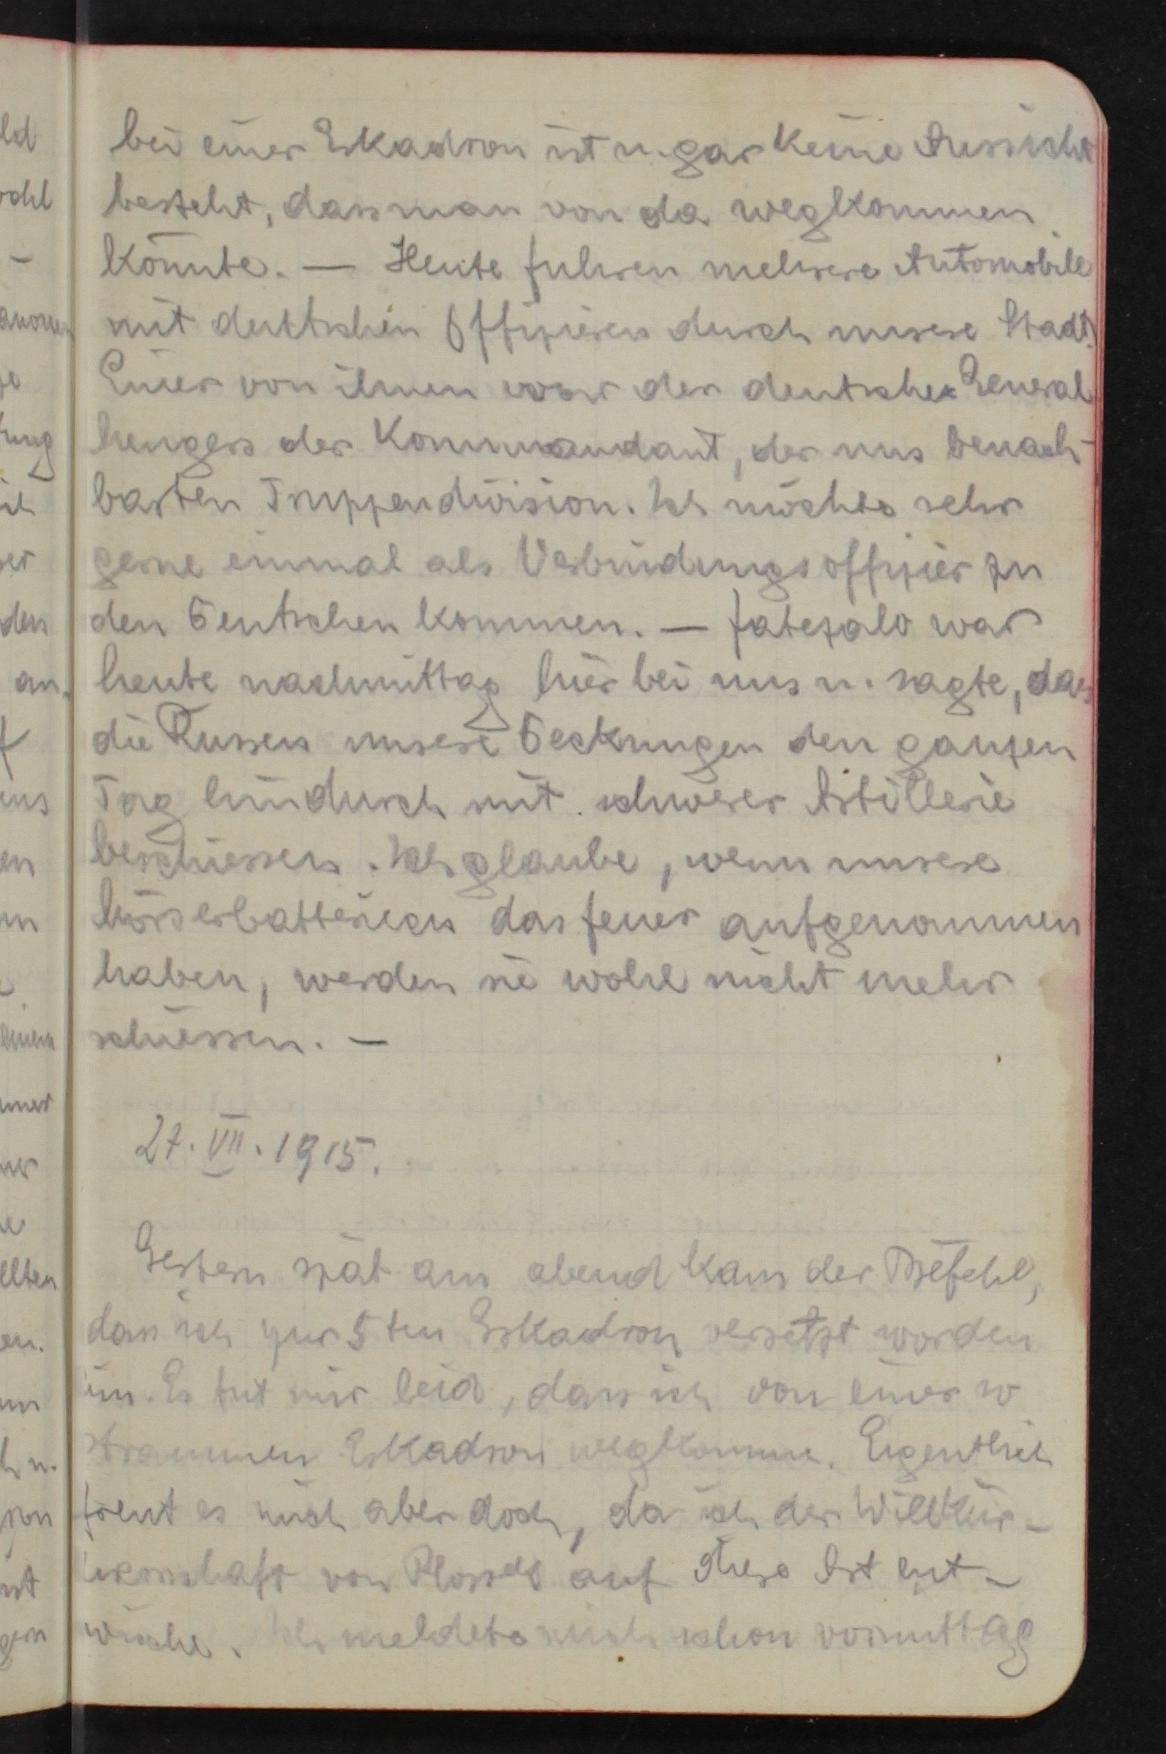 bei einer Eskadron ist u. gar keine Aussicht
besteht, dass man von da wegkommen
könnte. — Heute fuhren mehrere Automobile
mit deutschen Offizieren durch unsere Stadt.
Einer von ihnen war der deutsche General
der Kommandant, der uns benach-
barten Truppendivision. Ich möchte sehr
gerne einmal als Verbindungsoffizier zu
den Deutschen kommen. — war
heute nachmittag hier bei uns u. sagte, dass
die Russen unsere Deckungen den ganzen
Tag hindurch mit schwerer Artillerie
beschiessen. Ich glaube, wenn unsere
Mörserbatterien das Feuer aufgenommen
haben, werden sie wohl nicht mehr
schiessen. —
27. VII. 1915.
Gestern spät am abend kam der Befehl,
dass ich zur 5ten Eskadron versetzt worden
bin. Es tut mir leid, dass ich von einer so
strammen Eskadron wegkomme. Eigentlich
freut es mich aber doch, da ich der Willkür-
herrschaft von auf diese Art ent-
wische. Ich meldete mich schon vormittag